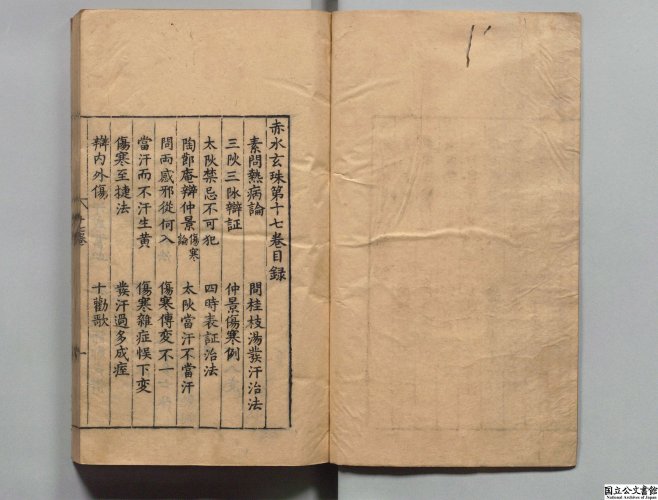 赤水玄珠第十七卷目録
素問熱病論 問桂枝湯發汗治法
三陰三陽辯証 仲景傷寒例
太陽禁忌不可犯 四時表証治法
陶節庵辯仲景傷寒論 太陽當汗不當汗
問兩感邪從何入 傷寒傳変不一
當汗而不汗生黄 傷寒雜症悮下変
傷寒至捷法 發汗過多成痓
辯内外傷 十勸歌
国立公文書館
National Archives of Japan